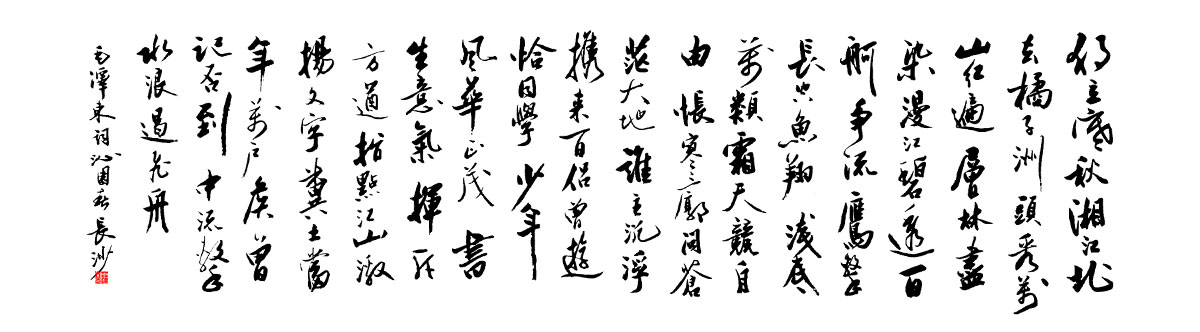 独立寒秋湘江北
去橘子洲頭看萬
山红遍層林盡
染漫江碧透百
舸争流鹰擊
長空魚翔浅底
萬類霜天競自
由悵寥廓問蒼
茫大地誰主沉浮
携来百侣曾遊
恰同學少年
風華正茂書
生意氣揮斥
方遒指點江山激
揚文字糞土當
年萬户侯曾
记否到中流擊
水浪遏飛舟
毛澤東词沁園春長沙